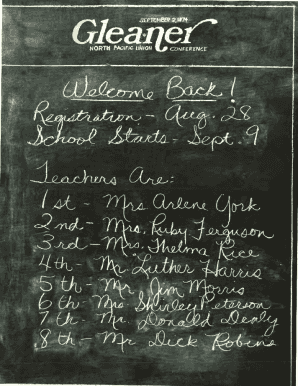 SEPTEMBER 2, 1974
Gleaner
NORTH PACIFIC UNION CONFERENCE
Welcome Back!
Registration - Aug. 28
School Starts - Sept. 9
Teachers Are:
1st - Mrs Arlene York
2nd - Mrs. Ruby Ferguson
3rd - Mrs. Thelma Rice
4th - Mr Luther Harris
5th - Mr. Jim Morris
6th - Mrs. Shirley Peterson
7th - Mr Donald Dealy
8th - Mr Dick Robins